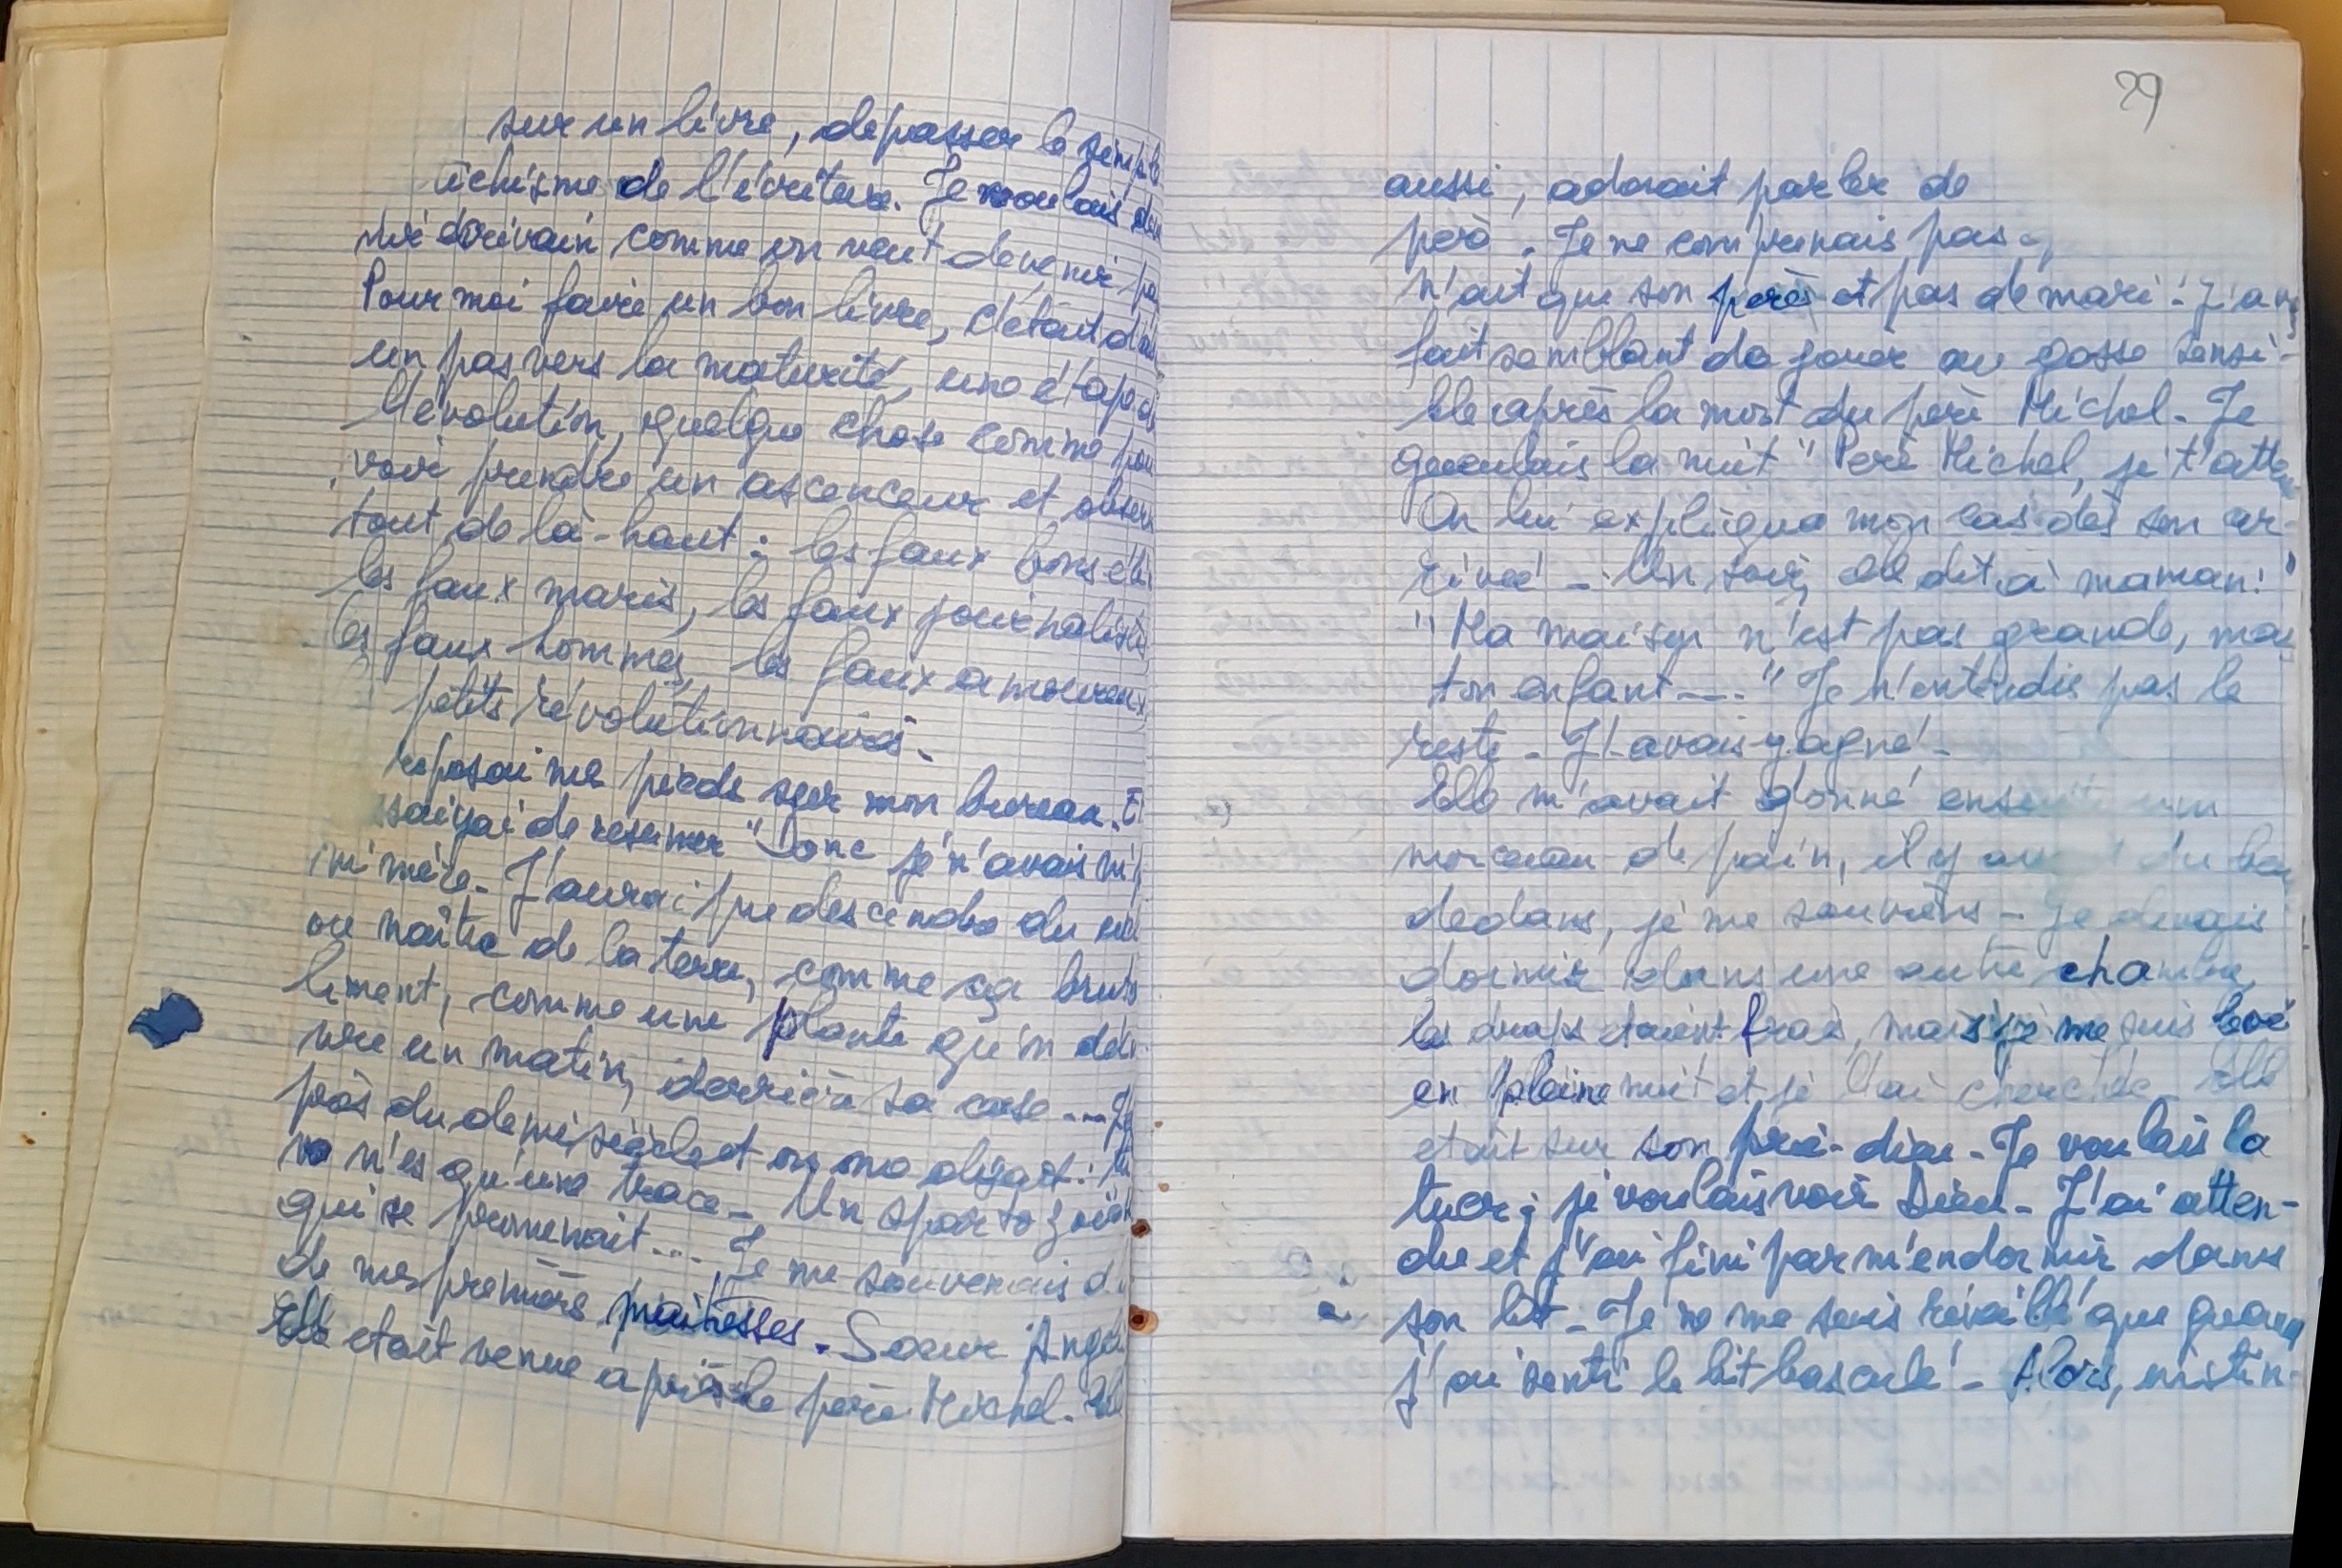 sur un livre, depasser le simple
fichisme de l'écriture. Je voulais
écrivain comme on veut devenir
Pour moi faire un bon livre, c'était
un pas vers la maturité, une étape
l'évolution, quelque chose comme pou
voir prendre un ascenceur et observ
tout de là-haut : les faux bons
les faux maris, les faux journaliste
les faux hommes, les faux amoureux,
petits révolutionnaires.
reposai ma pierde sur mon bureau. E
saiyai de resumer "Donc je n'avais ni p
ni mère. J'aurai pu descendre du ciel
ou naître de la terre, comme ça bruta
lement, comme une plante qu'on déco
vre un matin, derrière sa case.... Je
près du demi siècle et on me disait : tu
n'es qu'une trace. Un spartozoïde
qui se promenait.... Je me souvenais d
de mes premières maitresses. Soeur Angel
Elle etait venue après le père Michel. Elle
29
aussi, adorait parler de
père. Je ne comprenais pas q
n'ait que son père et pas de mari. J'avais
fait semblant de jouer au gosse sensi-
ble après la mort du père Michel. Je
gueulais la nuit "Père Michel, je t'atten
On lui expliqua mon cas dès son ar-
rivée. Un soir, elle dit à maman :
"Ma maison n'est pas grande, mais
ton enfant...." Je n'entendis pas le
reste. J'avais gagné.
Elle m'avait donné ensuite un
morceau de pain, il y avait du beu
dedans, je me souviens. Je devais
dormir dans une autre chambre,
les draps etaient frais, mais je me suis levé
en pleine nuit et je l'ai cherchée. Elle
etait sur son prie-dieu. Je voulais la
tuer ; je voulais voir Dieu. J'ai atten-
du et j'ai fini par m'endormir dans
son lit. Je ne me suis réveillé que quand
j'ai senti le lit basculé. Alors, instin-